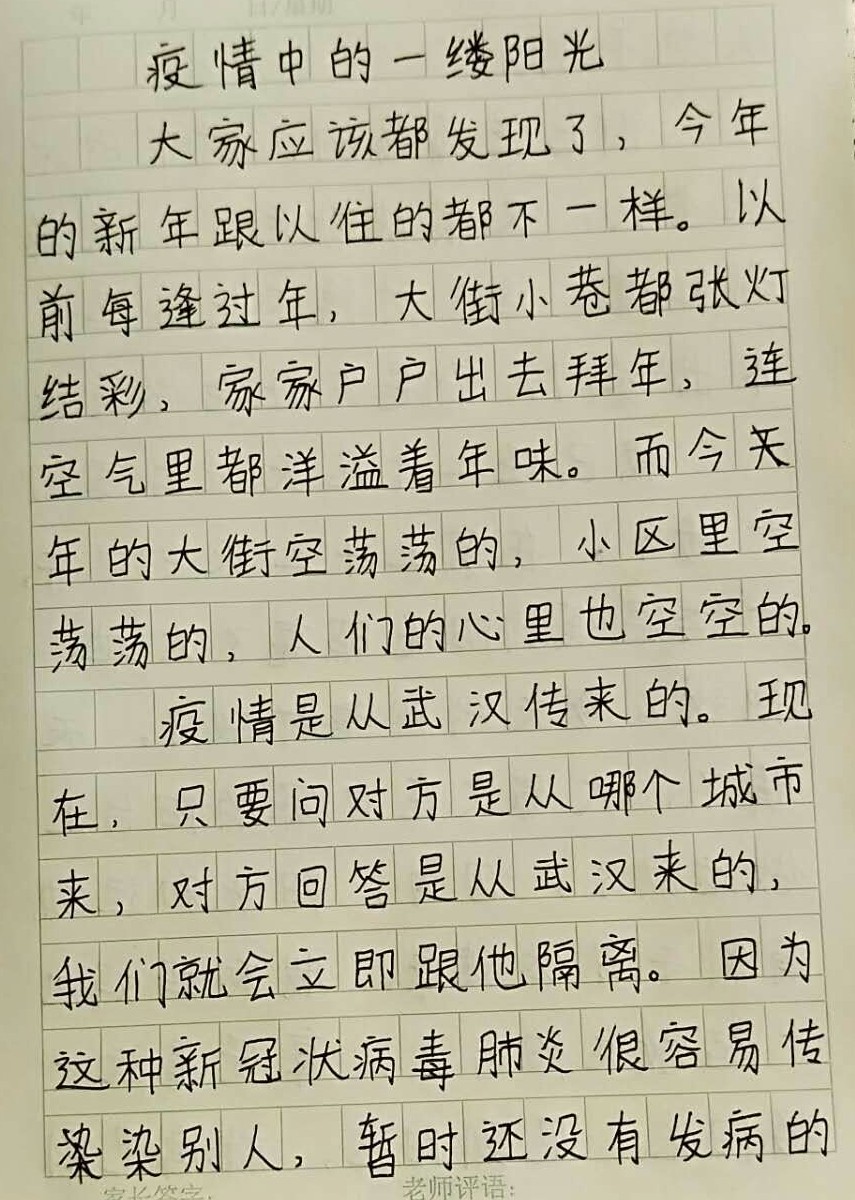 年 月 日/星期
疫情中的一缕阳光
大家应该都发现了，今年
的新年跟以往的都不一样。以
前每逢过年，大街小巷都张灯
结彩，家家户户出去拜年，连
空气里都洋溢着年味。而今天
年的大街空荡荡的，小区里空
荡荡的，人们的心里也空空的。
疫情是从武汉传来的。现
在，只要问对方是从哪个城市
来，对方回答是从武汉来的，
我们就会立即跟他隔离。因为
这种新冠状病毒肺炎很容易传
染染别人，暂时还没有发病的
家长签字： 老师评语：